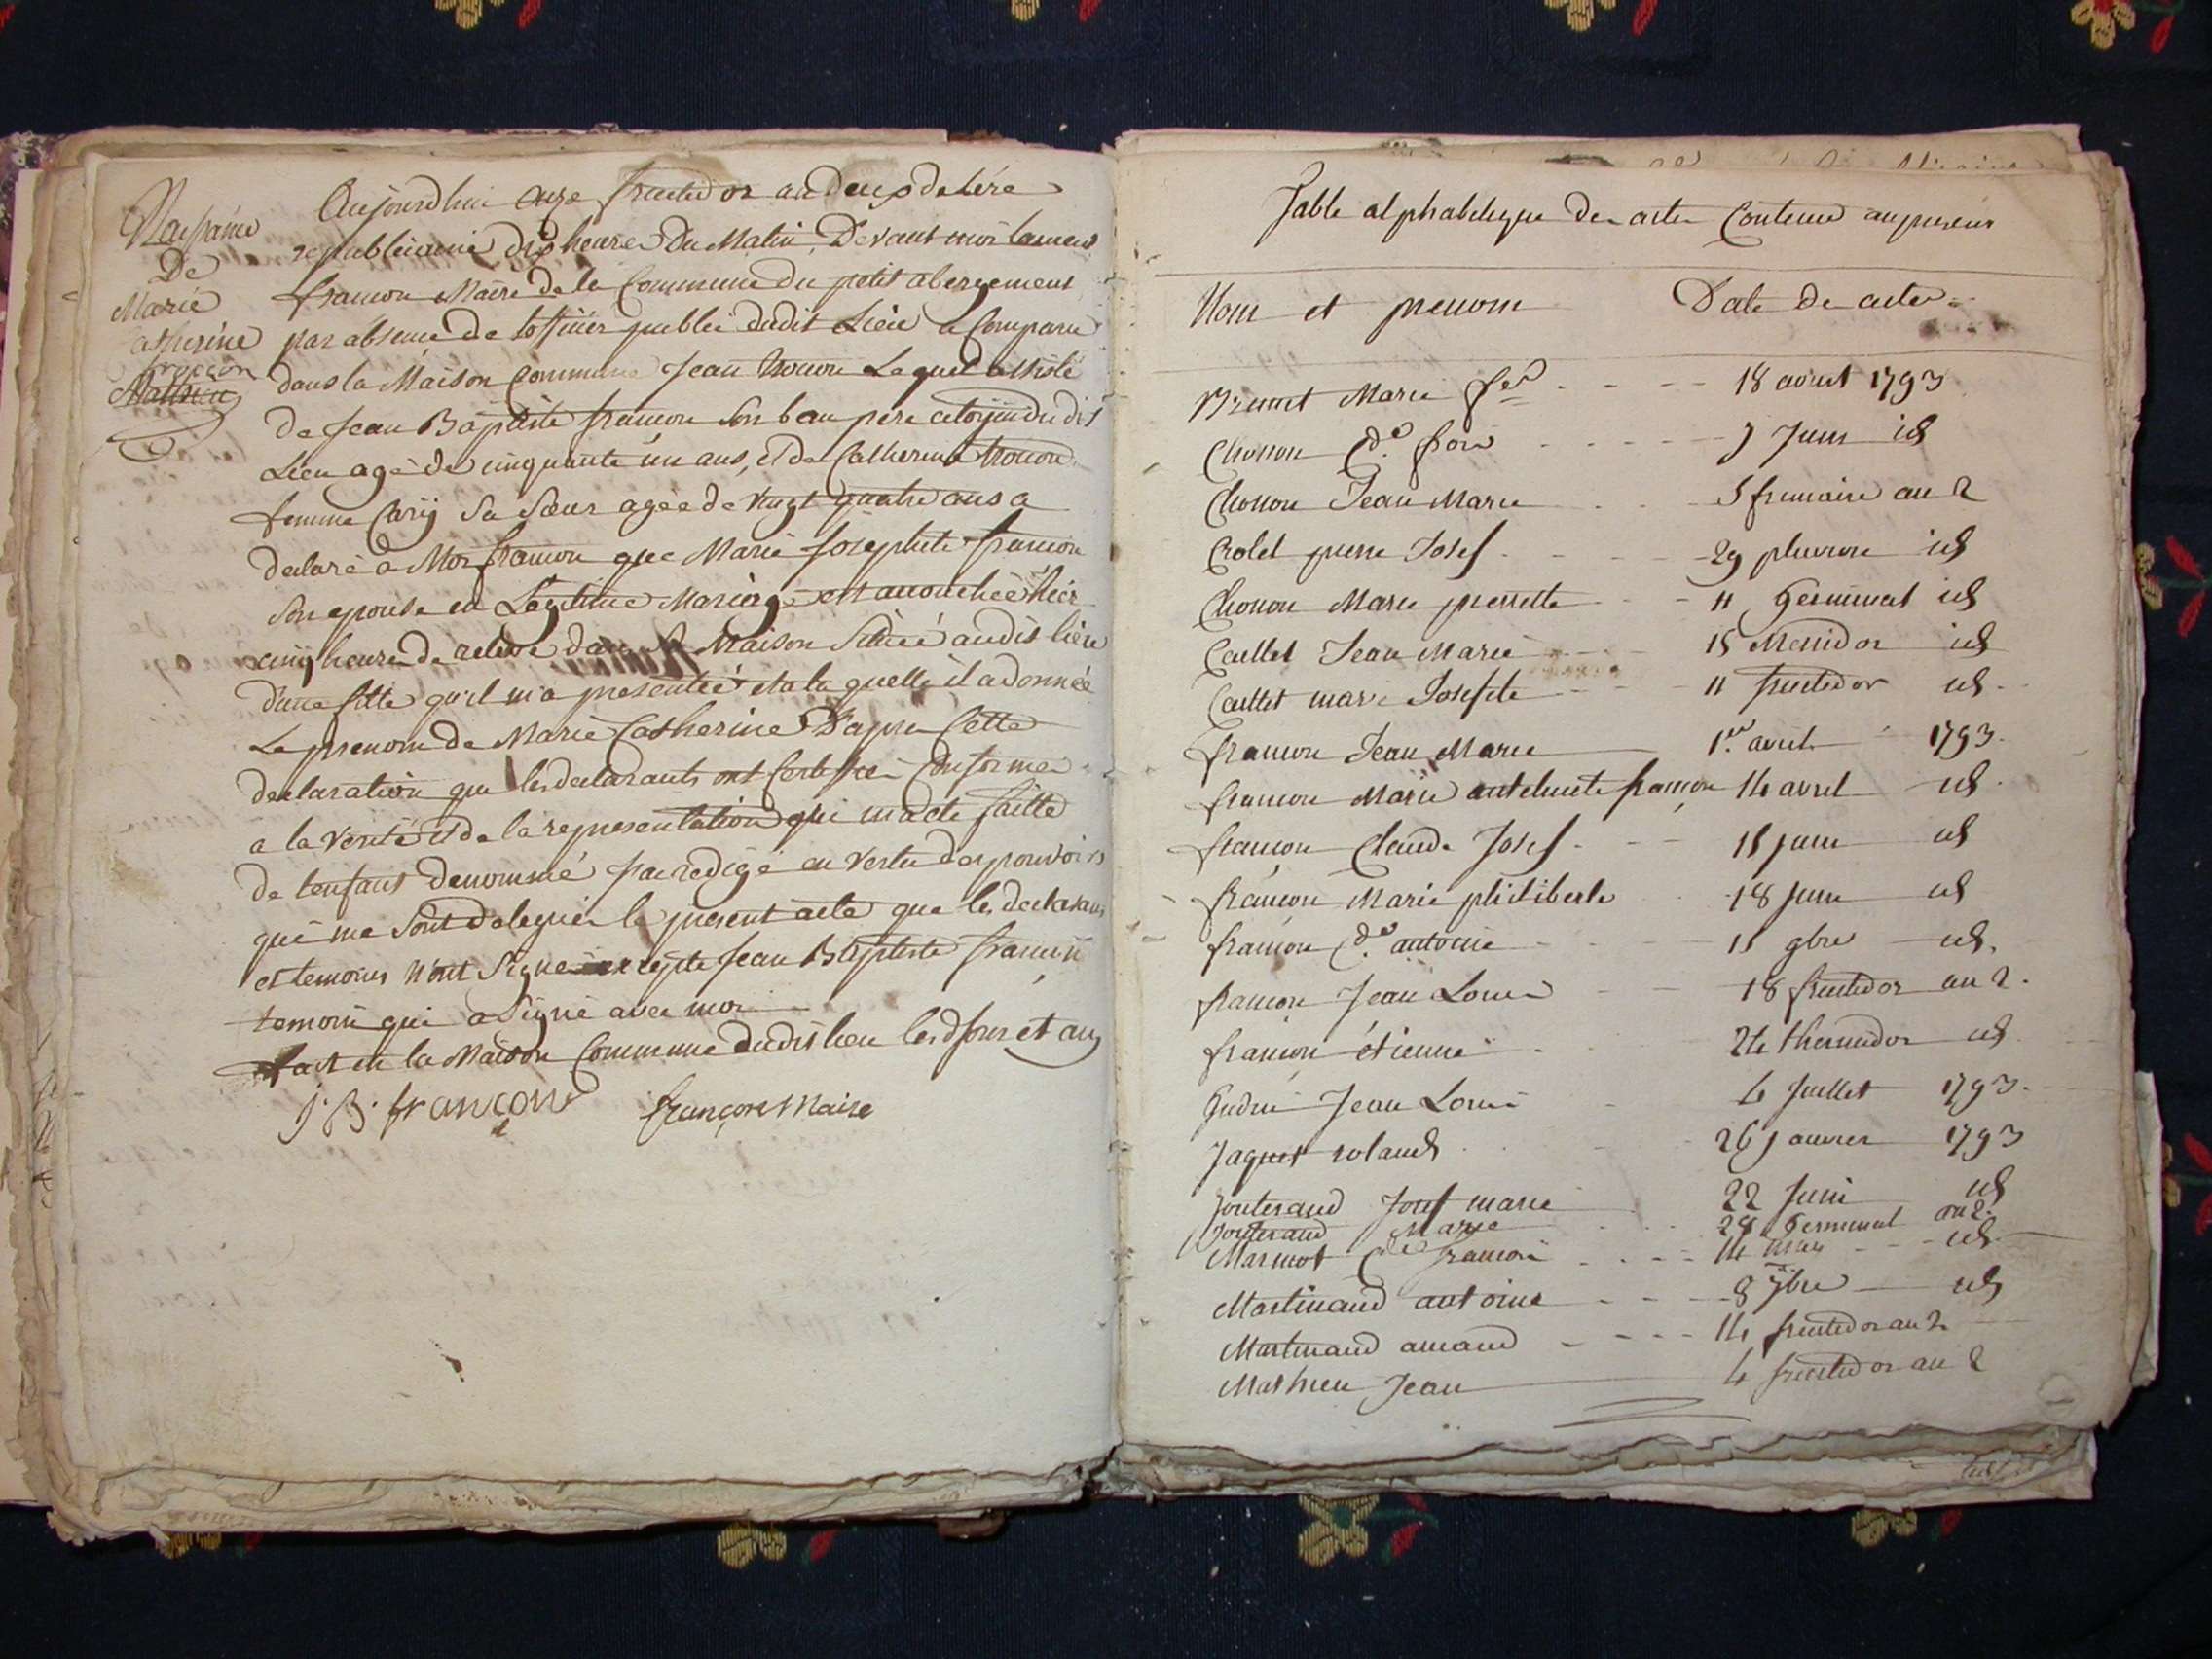 Naissance
De
Marie
Catherine
françon
Mathieu
Aujourd'hui onze fructidor an deux de l'ère
republicaine dix heures du Matin, Devant moi
françon Maire de la Commune du petit abergement
par absence de loficier public dudit Lieu a Comparu
dans la Maison Commune Jean Lequel assisté
de Jean Baptiste françon Son beau pere citoyen dudit
Lieu agé de cinquante un ans, et de Catherine
femme Sa Sœur agée de vingt quatre ans a
declaré a Moi françon que Marie Josephte françon
Son epouse en Legitime Mariage est accouchée hier
cinq heures de relevé dans Sa Maison Située audit lieu
d'une fille qu'il m'a presentée et a la quelle il a donnée
Le prenom de Marie Catherine D'apres Cette
declaration que les declarants ont Certifiée Conforme
a la Verité et de la representation qui m'a ete faitte
de lenfant denommé jai redigé en vertu des pouvoirs
qui me Sont delegués le present acte que les declarans
et temoins N'ont Signé excepte Jean Baptiste françon
temoin qui a Signé avec moi
fait en la Maison Commune dudit lieu les d jour et an
J. B. françon françon Maire
Table alphabetique des actes Contenu au present
Nom et prenom Date des actes
Brunet Marie fse 18 aoust 1793
Chonon Cde 9 Juin id
Chonon Jean Marie 5 frimaire an 2
Crolet pierre Josef 29 pluviose id
Chonon Marie pierrette 11 Germinal id
Caillet Jean Marie 15 Messidor id
Caillet marie Josephte 11 fructidor id
françon Jean Marie 1er avril 1793
françon Marie anthelmette françon 14 avril id
françon Claude Josef 15 juin id
françon Marie philiberte 18 juin id
françon Cde antoine 15 9bre id
françon Jean Louis 18 fructidor an 2
françon étienne 24 thermidor id
Jean Louis 4 Juillet 1793
Jaquet roland 26 janvier 1793
Jouterand Josef marie 22 Juin id
Jouterand Marie 28 Germinal an 2
Marmot Cde françon 14 id
Martinand antoine 8 id
Martinand amand 14 fructidor an 2
Mathieu Jean 4 fructidor an 2